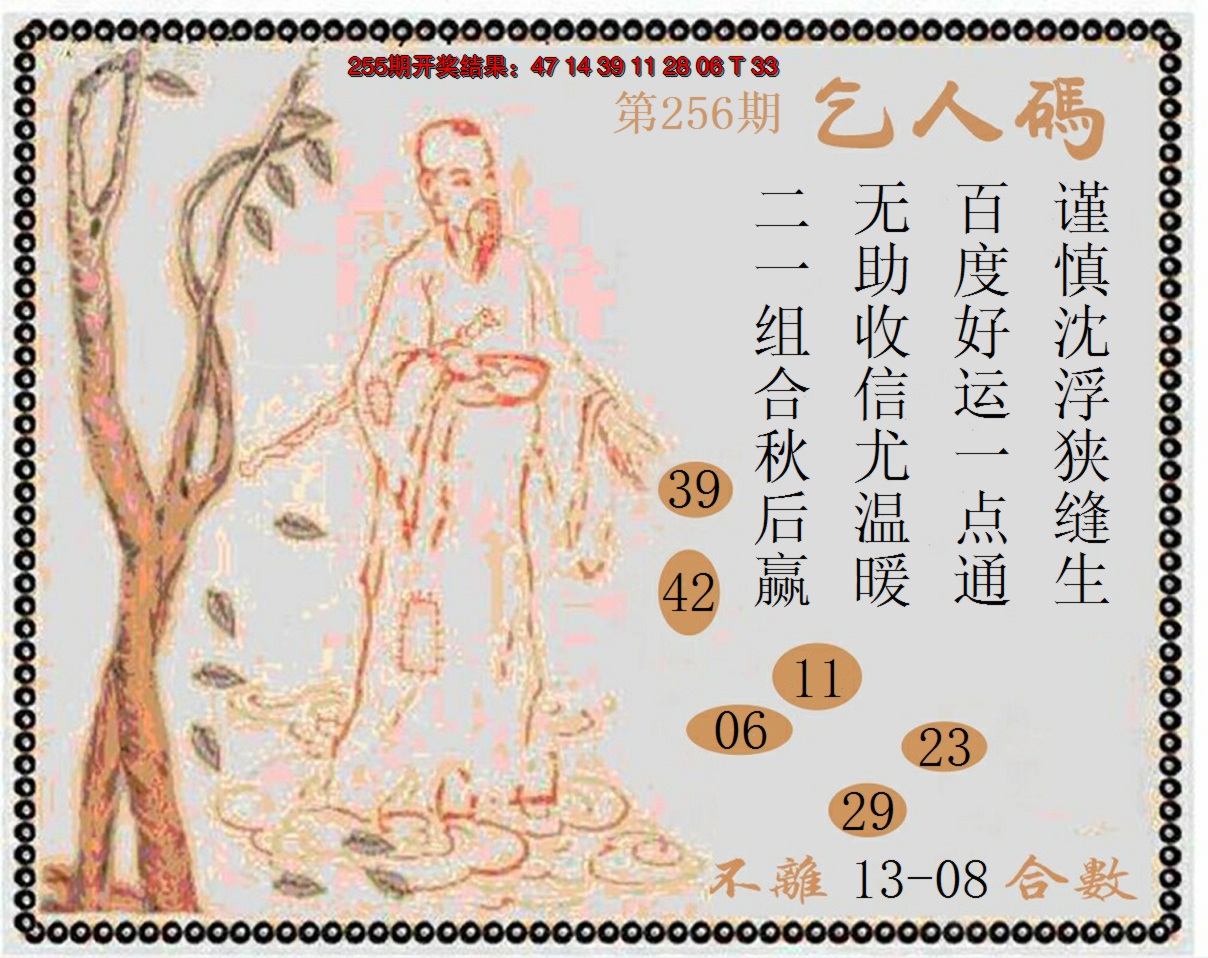 255期开奖结果：47 14 39 11 28 06 T 33
第256期
乞人碼
谨慎沈浮狭缝生
百度好运一点通
无助收信尤温暖
二一组合秋后赢
39
42
11
06
23
29
不離 13-08 合數